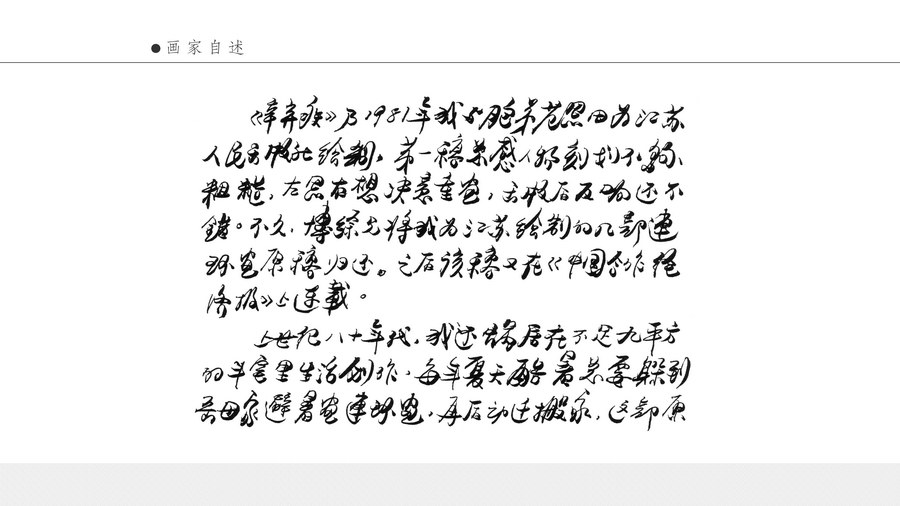 画家自述
《辛弃疾》乃1981年我与胞弟范思田为江苏
人民出版社绘制。第一稿某感人物刻划不够
粗糙，左思右想决意重画，出版后反响还不
错。不久，将我为江苏绘制的几部连
环画原稿归还。之后该稿又在《中国合作经
济报》上连载。
上世纪八十年代，我还蜗居在不足九平方
的半室里生活创作，每年夏天酷暑总要躲到
岳母家避暑画连环画，再后动迁搬家，这部原